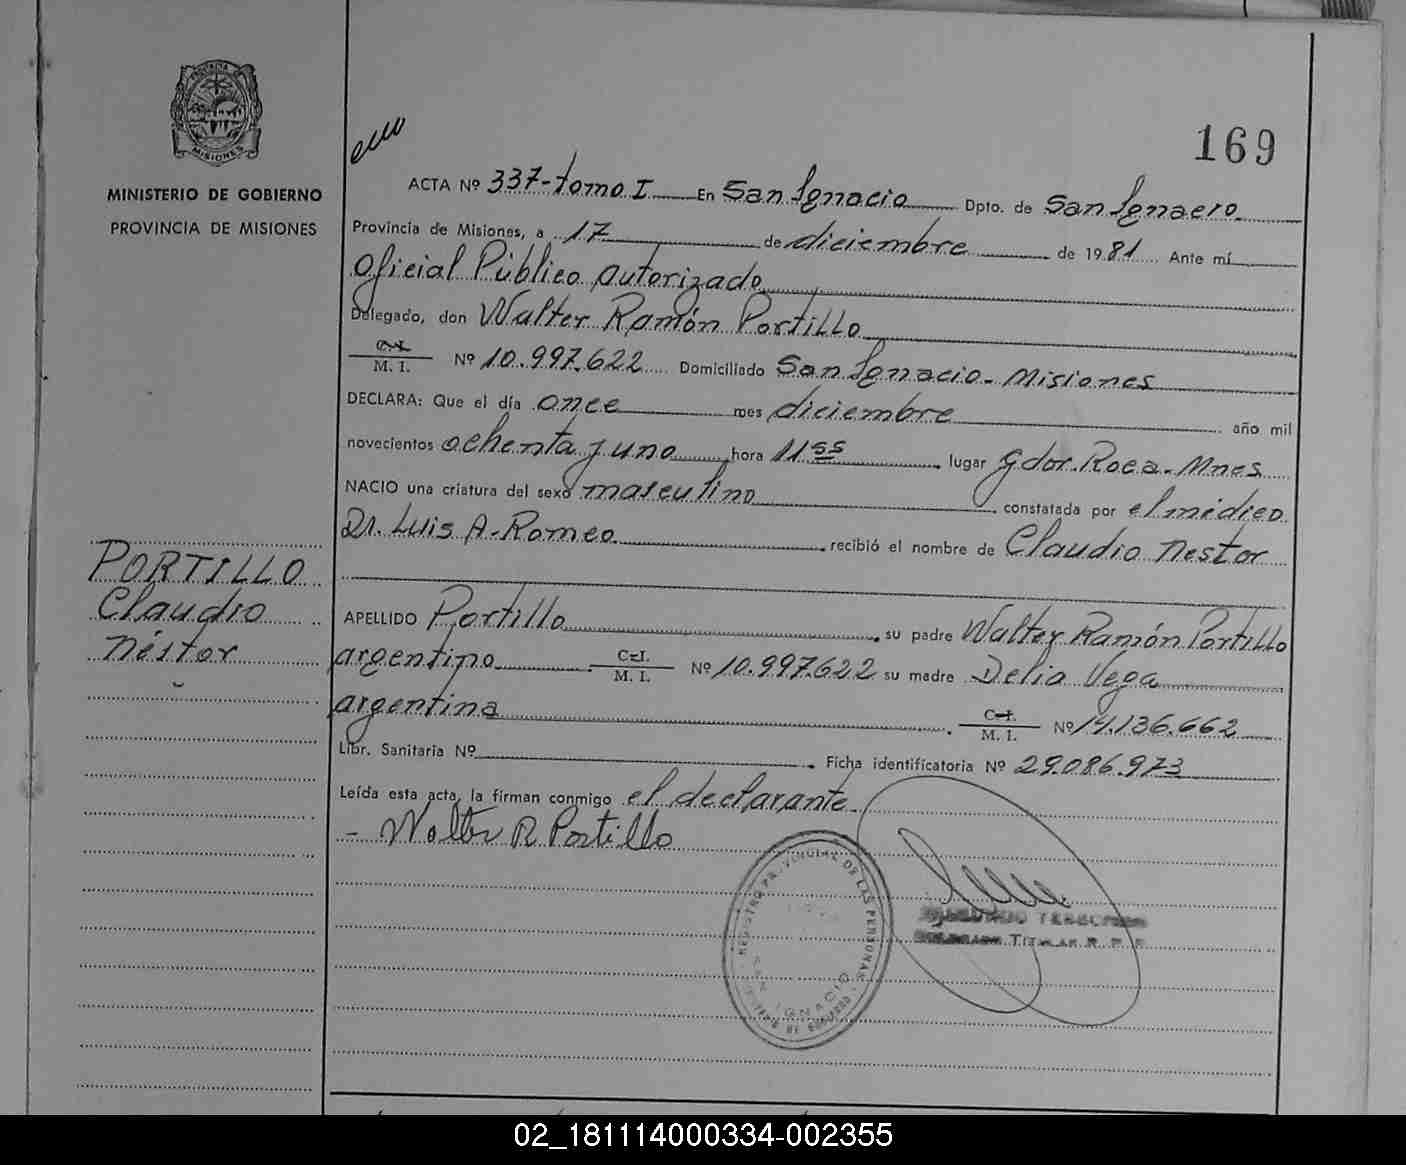 PROVINCIA DE
MISIONES
MINISTERIO DE GOBIERNO
PROVINCIA DE MISIONES
PORTILLO
Claudio
Néstor
169
ACTA Nº 337-tomo I En San Ignacio Dpto. de San Ignacio
Provincia de Misiones, a 17 de diciembre de 1981 Ante mí
Oficial Público Autorizado
Delegado, don Walter Ramón Portillo
C. I. / M. I. Nº 10.997.622 Domiciliado San Ignacio - Misiones
DECLARA: Que el día once mes diciembre año mil
novecientos ochenta y uno hora 11 55 lugar Gdor. Roca - Mnes
NACIO una criatura del sexo masculino constatada por el médico
Dr. Luis A. Romeo recibió el nombre de Claudio Nestor
APELLIDO Portillo su padre Walter Ramón Portillo
argentino C. I. / M. I. Nº 10.997.622 su madre Delia Vega
argentina C. I. / M. I. Nº 14.136.662
Libr. Sanitaria Nº Ficha identificatoria Nº 29.086.973
Leída esta acta, la firman conmigo el declarante
- Walter R Portillo
REGISTRO PROVINCIAL DE LAS PERSONAS
SAN IGNACIO
TITULAR R. P. P.
02_181114000334-002355